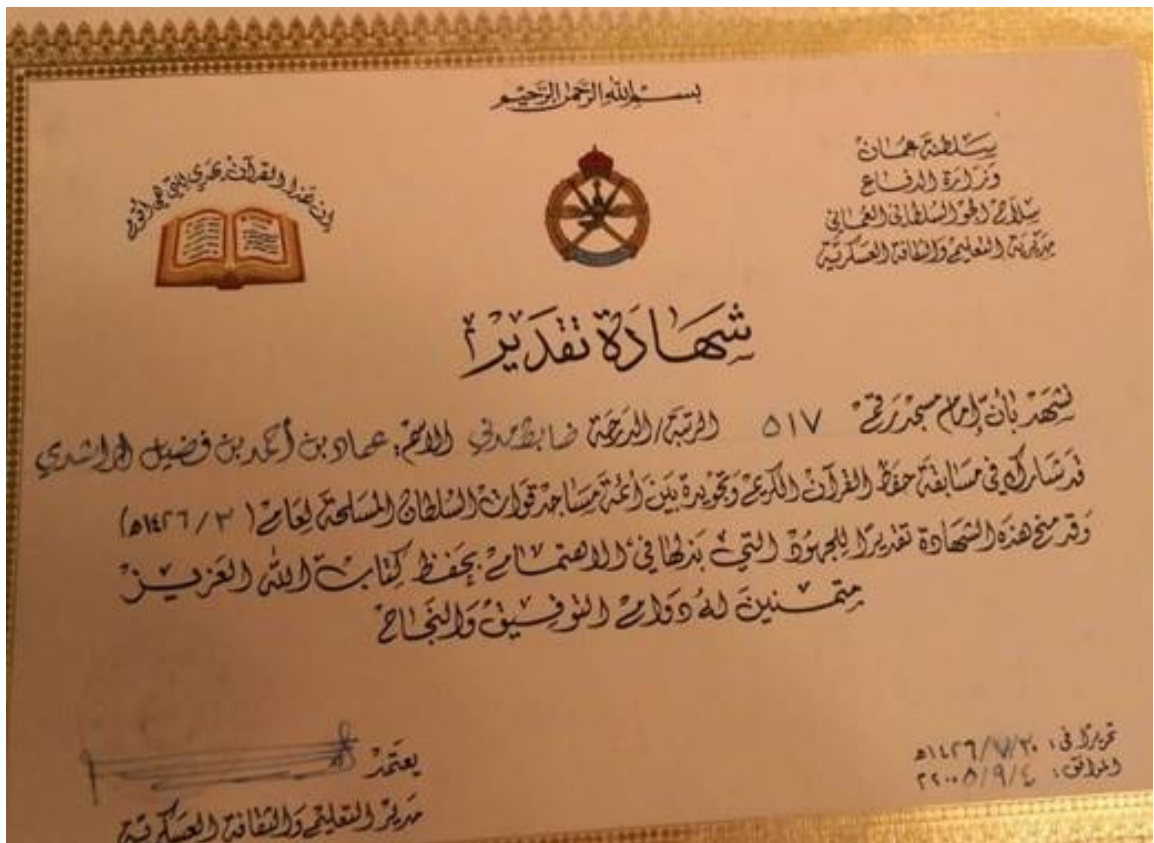 بسم الله الرحمن الرحيم
سلطنة عمان
وزارة الدفاع
سلاح الجو السلطاني العماني
مديرية التعليم والثقافة العسكرية
إن هذا القرآن يهدي للتي هي أقوم
شهادة تقدير
نشهد بأن إمام مسجد رقم ٥١٧ الرتبة/الدرجة ضابط مدني الاسم: عماد بن أحمد بن فضيل الراشدي
قد شارك في مسابقة حفظ القرآن الكريم وتجويده بين أئمة مساجد قوات السلطان المسلحة لعام (٣ / ١٤٢٦ه)
وقد منح هذه الشهادة تقديرًا للجهود التي بذلها في الاهتمام بحفظ كتاب الله العزيز
متمنين له دوام التوفيق والنجاح
تحريرًا في: ٣٠/٧/١٤٢٦ه
الموافق: ٤/٩/٢٠٠٥م
يعتمد
مدير التعليم والثقافة العسكرية